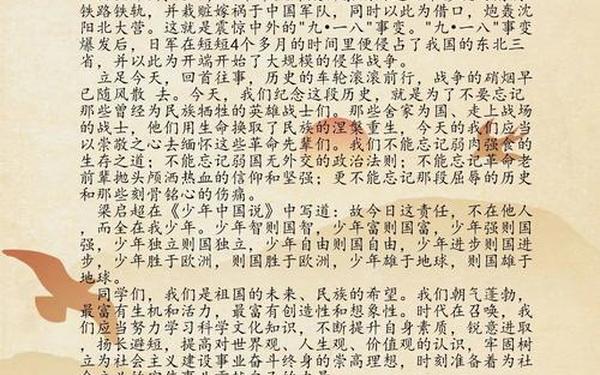 铁路铁轨，并栽赃嫁祸于中国军队，同时以此为借口，炮轰沈
阳北大营。这就是震惊中外的"九·一八"事变。"九·一八"事变
爆发后，日军在短短4个多月的时间里便侵占了我国的东北三
省，并以此为开端开始了大规模的侵华战争。
立足今天，回首往事，历史的车轮滚滚前行，战争的硝烟早
已随风散 去。今天，我们纪念这段历史，就是为了不要忘记
那些曾经为民族牺牲的英雄战士们。那些舍家为国、走上战场
的战士，他们用生命换取了民族的涅槃重生，今天的我们应当
以崇敬之心去缅怀这些革命先辈们。我们不能忘记弱肉强食的
生存之道；不能忘记弱国无外交的政治法则；不能忘记革命老
前辈抛头颅洒热血的信仰和坚强；更不能忘记那段屈辱的历史
和那些刻骨铭心的伤痛。
梁启超在《少年中国说》中写道：故今日这责任，不在他人
，而全在我少年。少年智则国智，少年富则国富，少年强则国
强，少年独立则国独立，少年自由则国自由，少年进步则国进
步，少年胜于欧洲，则国胜于欧洲，少年雄于地球，则国雄于
地球。
同学们，我们是祖国的未来、民族的希望。我们朝气蓬勃，
最富有生机和活力，最富有创造性和想象性。时代在召唤，我
们应当努力学习科学文化知识，不断提升自身素质，锐意进取
，扬长避短，提高对世界观、人生观、价值观的认识，牢固树
立为社会主义建设事业奋斗终身的崇高理想，时刻准备着为社